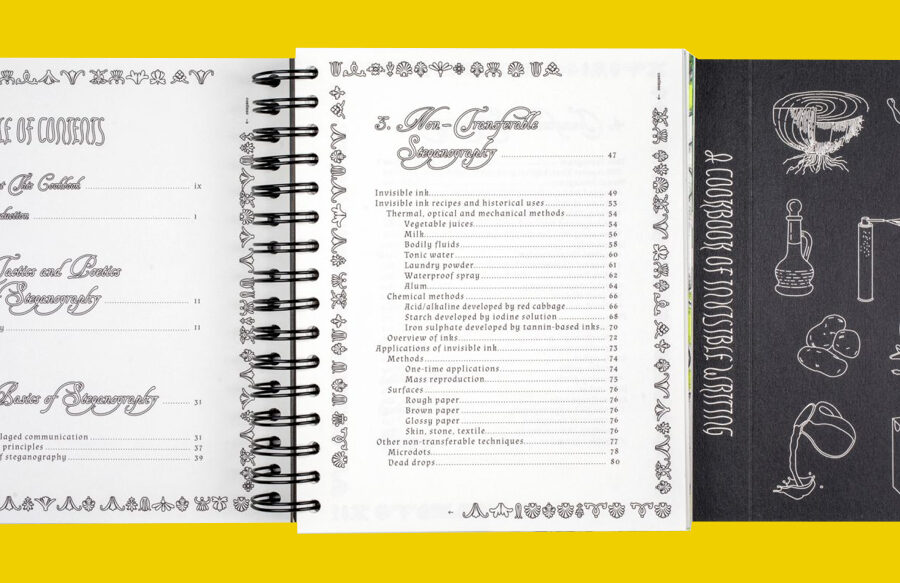 LE OF CONTENTS
This Cookbook ix
1
Tactics and Poetics
Steganography 11
11
Basics of Steganography 31
communication 31
principles 37
of steganography 39
contents
3. Non-Transferable
Steganography 47
Invisible ink 49
Invisible ink recipes and historical uses 53
Thermal, optical and mechanical methods 54
Vegetable juices 54
Milk 56
Bodily fluids 58
Tonic water 60
Laundry powder 61
Waterproof spray 62
Alum 64
Chemical methods 66
Acid/alkaline developed by red cabbage 66
Starch developed by iodine solution 68
Iron sulphate developed by tannin-based inks 70
Overview of inks 72
Applications of invisible ink 73
Methods 74
One-time applications 74
Mass reproduction 75
Surfaces 76
Rough paper 76
Brown paper 76
Glossy paper 76
Skin, stone, textile 76
Other non-transferable techniques 77
Microdots 78
Dead drops 80
contents
A COOKBOOK OF INVISIBLE WRITING